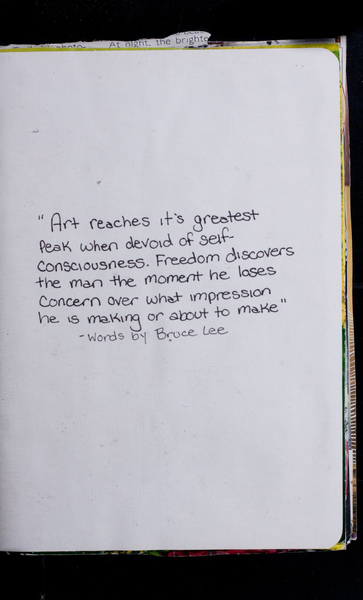 At night, the brighte
"Art reaches it's greatest
Peak when devoid of self-
Consciousness. Freedom discovers
the man the moment he loses
Concern over what impression
he is making or about to make"
- Words by Bruce Lee